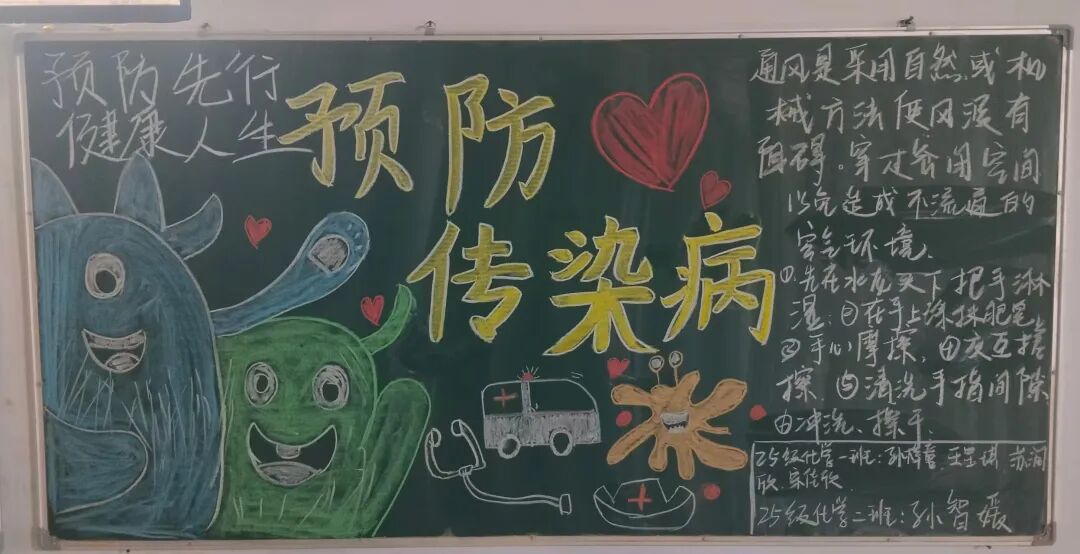 预防先行
健康人生
预防
传染病
通风是采用自然或机
械方法使风没有
阻碍。穿过密闭空间
以免造成不流通的
空气环境、
①先在水龙头下把手淋
湿:②在手上涂抹肥皂
③手心摩擦,④交互搓
擦 ⑤清洗手指间隙
⑥冲洗、擦干.
25级化学一班:孙 王 苏润
欣 宋佳欣
25级化学二班:孙智媛